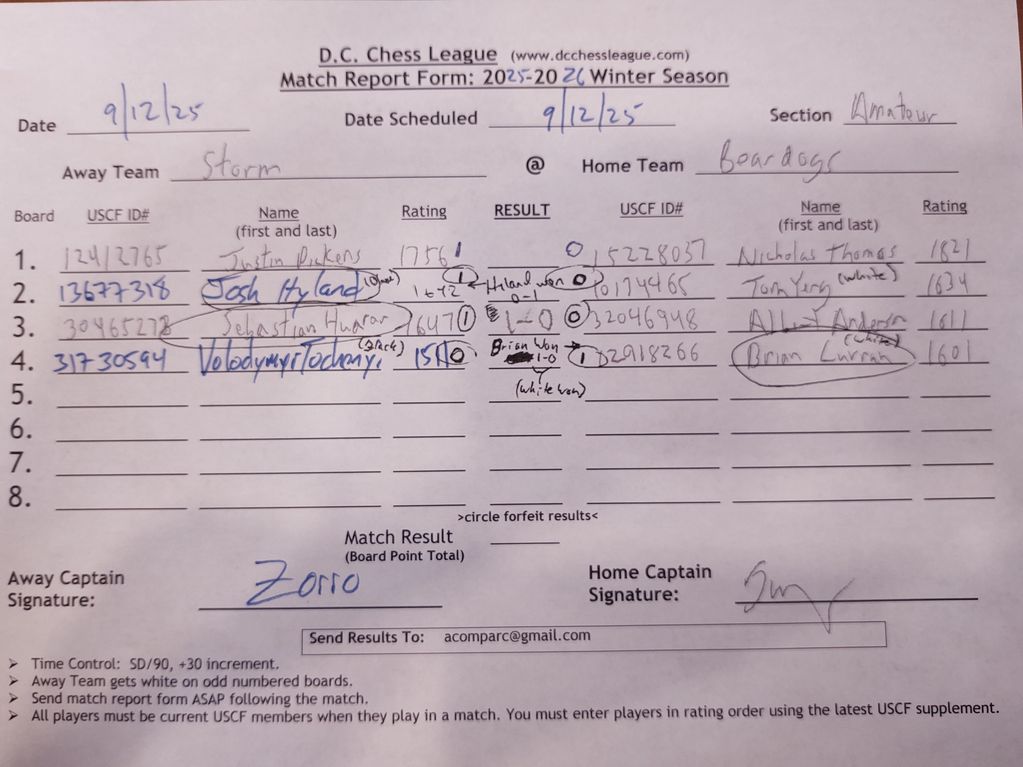 D.C. Chess League (www.dcchessleague.com)
Match Report Form: 2025-2026 Winter Season
Date 9/12/25 Date Scheduled 9/12/25 Section Amateur
Away Team Storm @ Home Team Beardogs
Board USCF ID# Name (first and last) Rating RESULT USCF ID# Name (first and last) Rating
1. 12412765 Justin Pickens 1756 1 0 15228037 Nicholas Thomas 1821
2. 13677318 Josh Hyland 1 Hyland won 0 Tom (white) 1634
0-1
3. 30465278 Sebastian 1647 1 1-0 0 32046948 Anderson 1611
4. 31730594 (Black) 0 Brian Won 1 Brian Curran (white) 1601
1-0
(white won)
5.
6.
7.
8.
>circle forfeit results<
Match Result
(Board Point Total)
Away Captain Signature: Zorro Home Captain Signature:
Send Results To: acomparc@gmail.com
➢ Time Control: SD/90, +30 increment.
➢ Away Team gets white on odd numbered boards.
➢ Send match report form ASAP following the match.
➢ All players must be current USCF members when they play in a match. You must enter players in rating order using the latest USCF supplement.